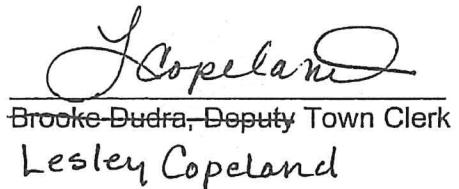 L Copeland
Brooke Dudra, Deputy Town Clerk
Lesley Copeland